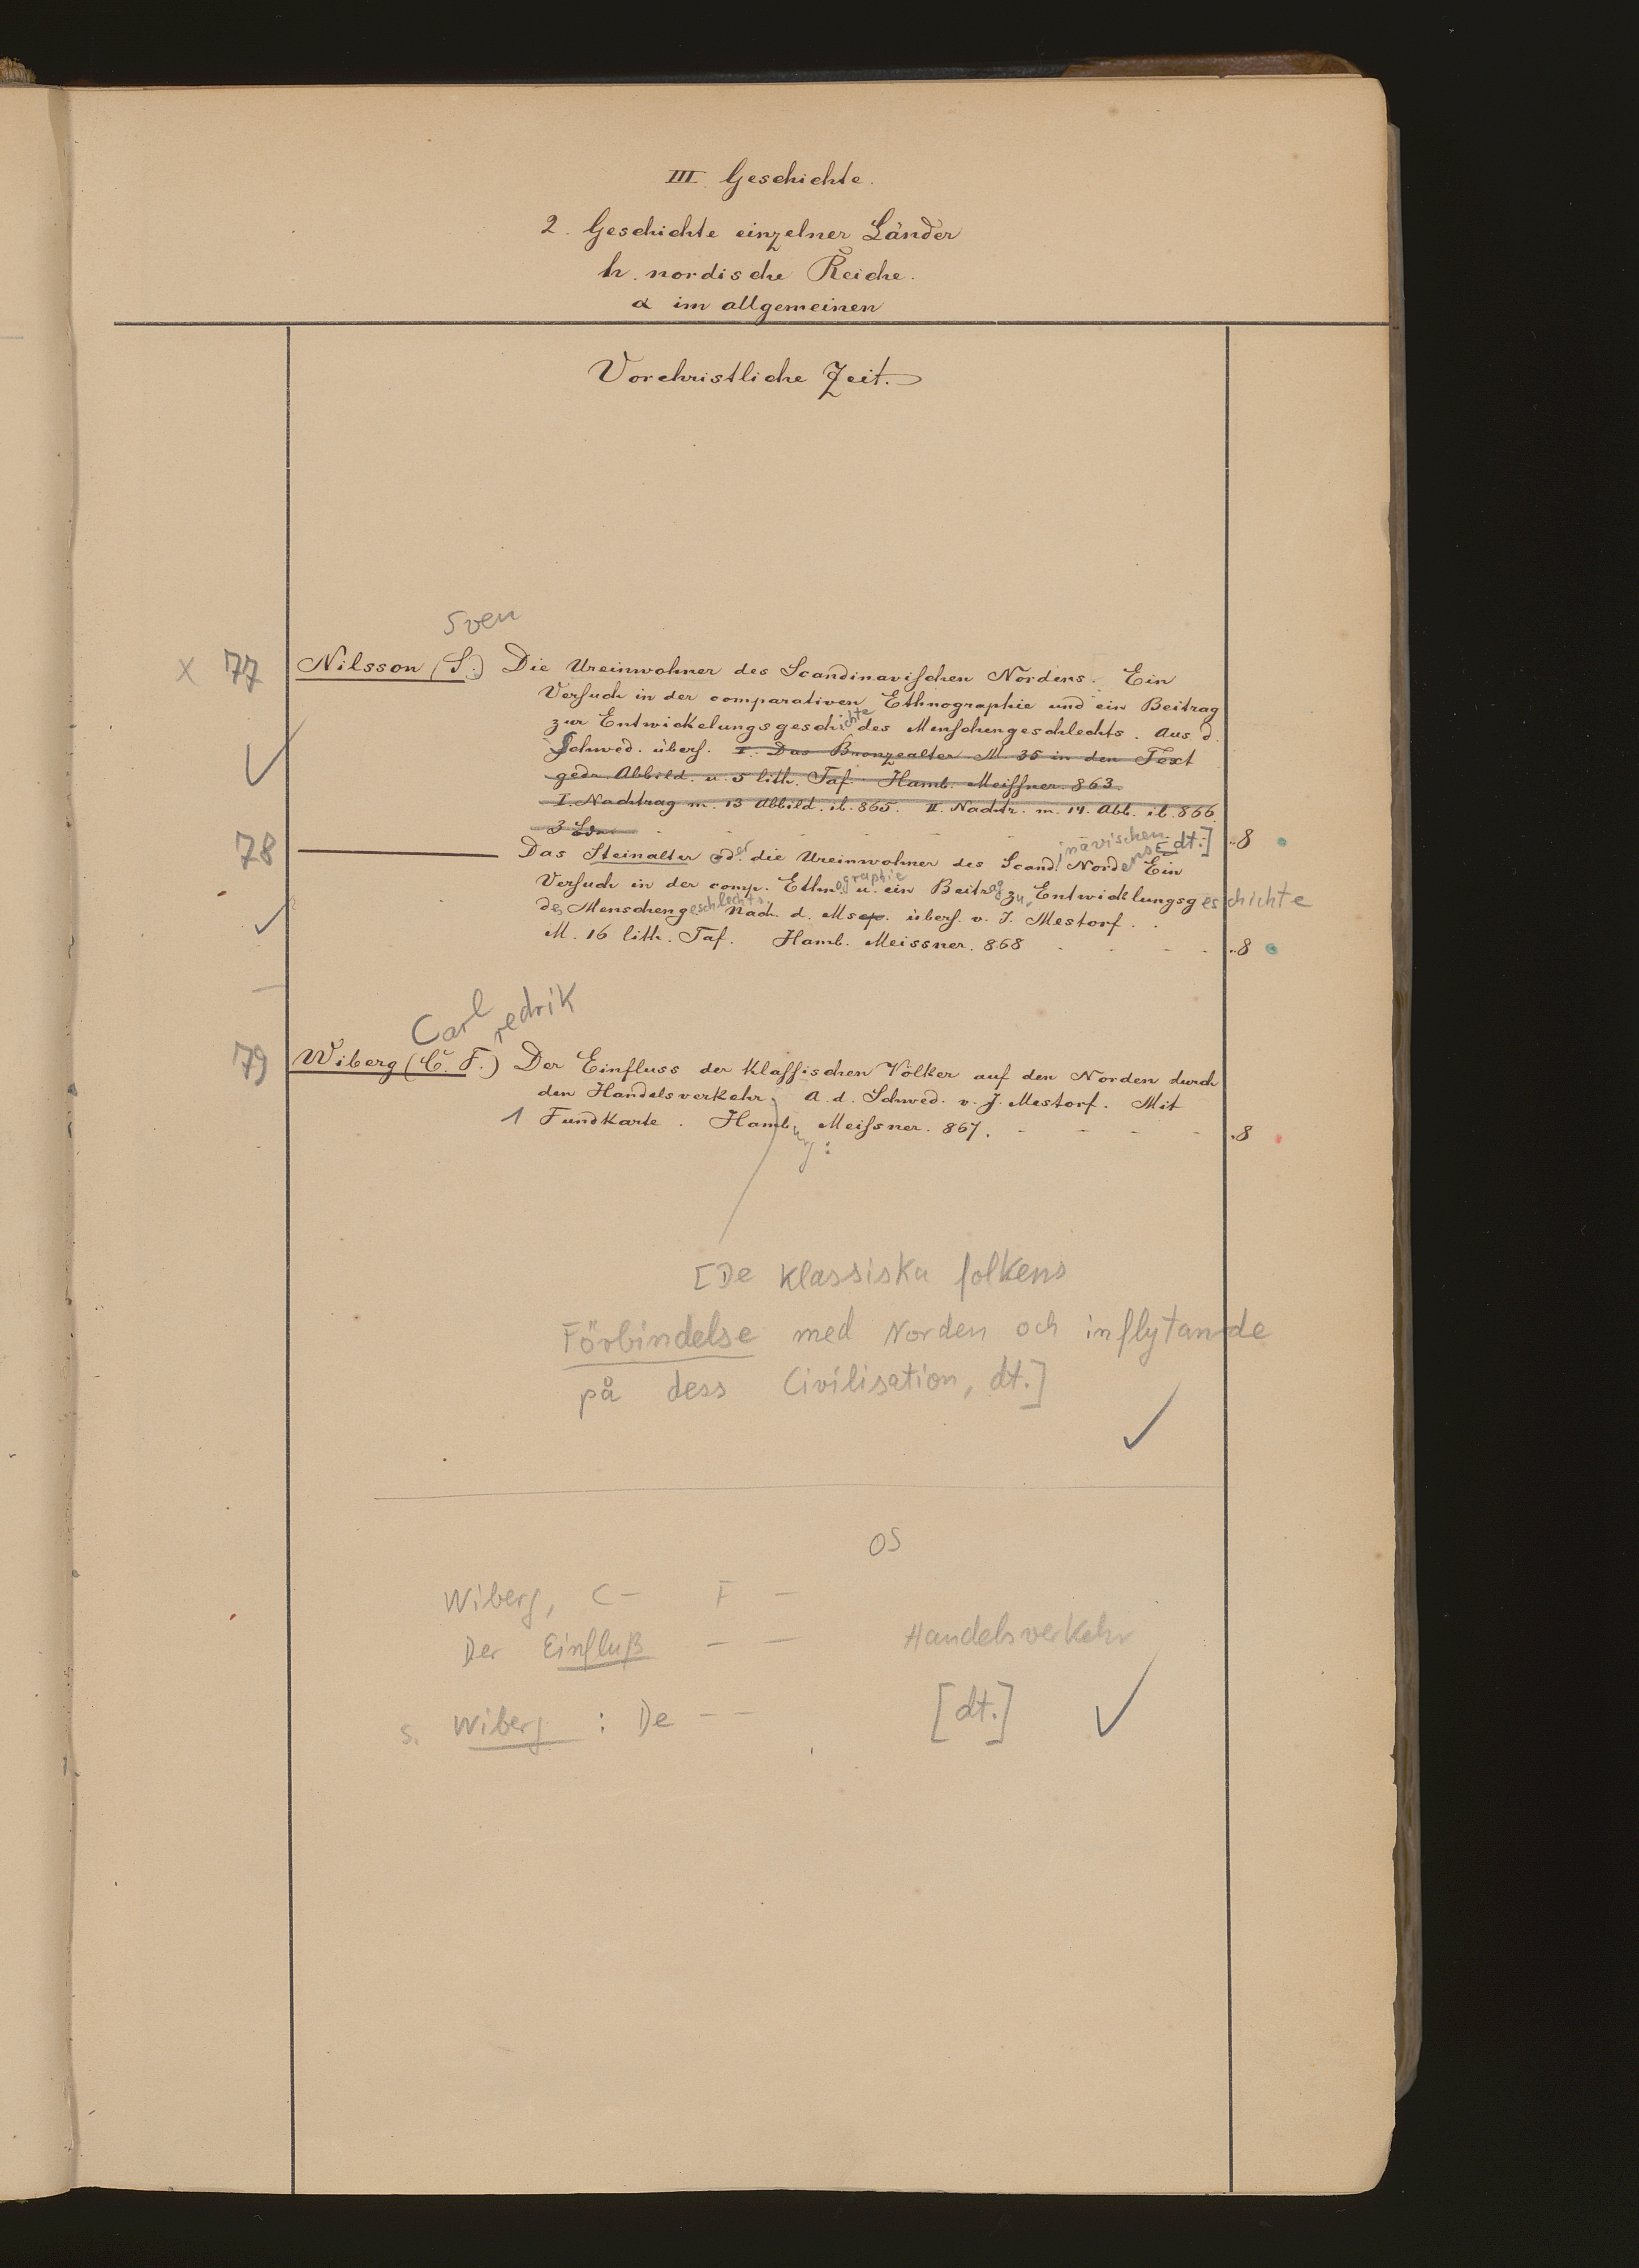 III. Geschichte.
2. Geschichte einzelner Länder
h. nordische Reiche.
α im allgemeinen
Vorchristliche Zeit.
Sven
x 77 Nilsson (S.) Die Ureinwohner des Scandinavischen Nordens. Ein
Versuch in der comparativen Ethnographie und ein Beitrag
zur Entwickelungsgeschichte des Menschengeschlechts. Aus d.
Schwed. übers. I. Das Bronzealter. M. 35 in den Text
gedr. Abbild. u. 5 lith. Taf. Hamb. Meissner. 863.
I. Nachtrag m. 13 Abbild. ib. 865. II. Nachtr. m. 14. Abb. ib. 866.
3 Bde. 8
78 Das Steinalter oder die Ureinwohner des Scandinavischen Nordens [dt.] Ein
Versuch in der comp. Ethnographie u. ein Beitrag zu Entwicklungsgeschichte
des Menschengeschlechts. Nach d. Mscp. übers. v. J. Mestorf.
M. 16 lith. Taf. Hamb. Meissner. 868 8
Carl redrik
79 Wiberg (C. F.) Der Einfluss der klassischen Völker auf den Norden durch
den Handelsverkehr. A. d. Schwed. v. J. Mestorf. Mit
1 Fundkarte. Hamburg: Meissner. 867. 8
[De klassiska folkens
Förbindelse med Norden och inflytande
på dess Civilisation, dt.]
OS
Wiberg, C - F -
Der Einfluß - - Handelsverkehr
s. Wiberg : De - - [dt.]